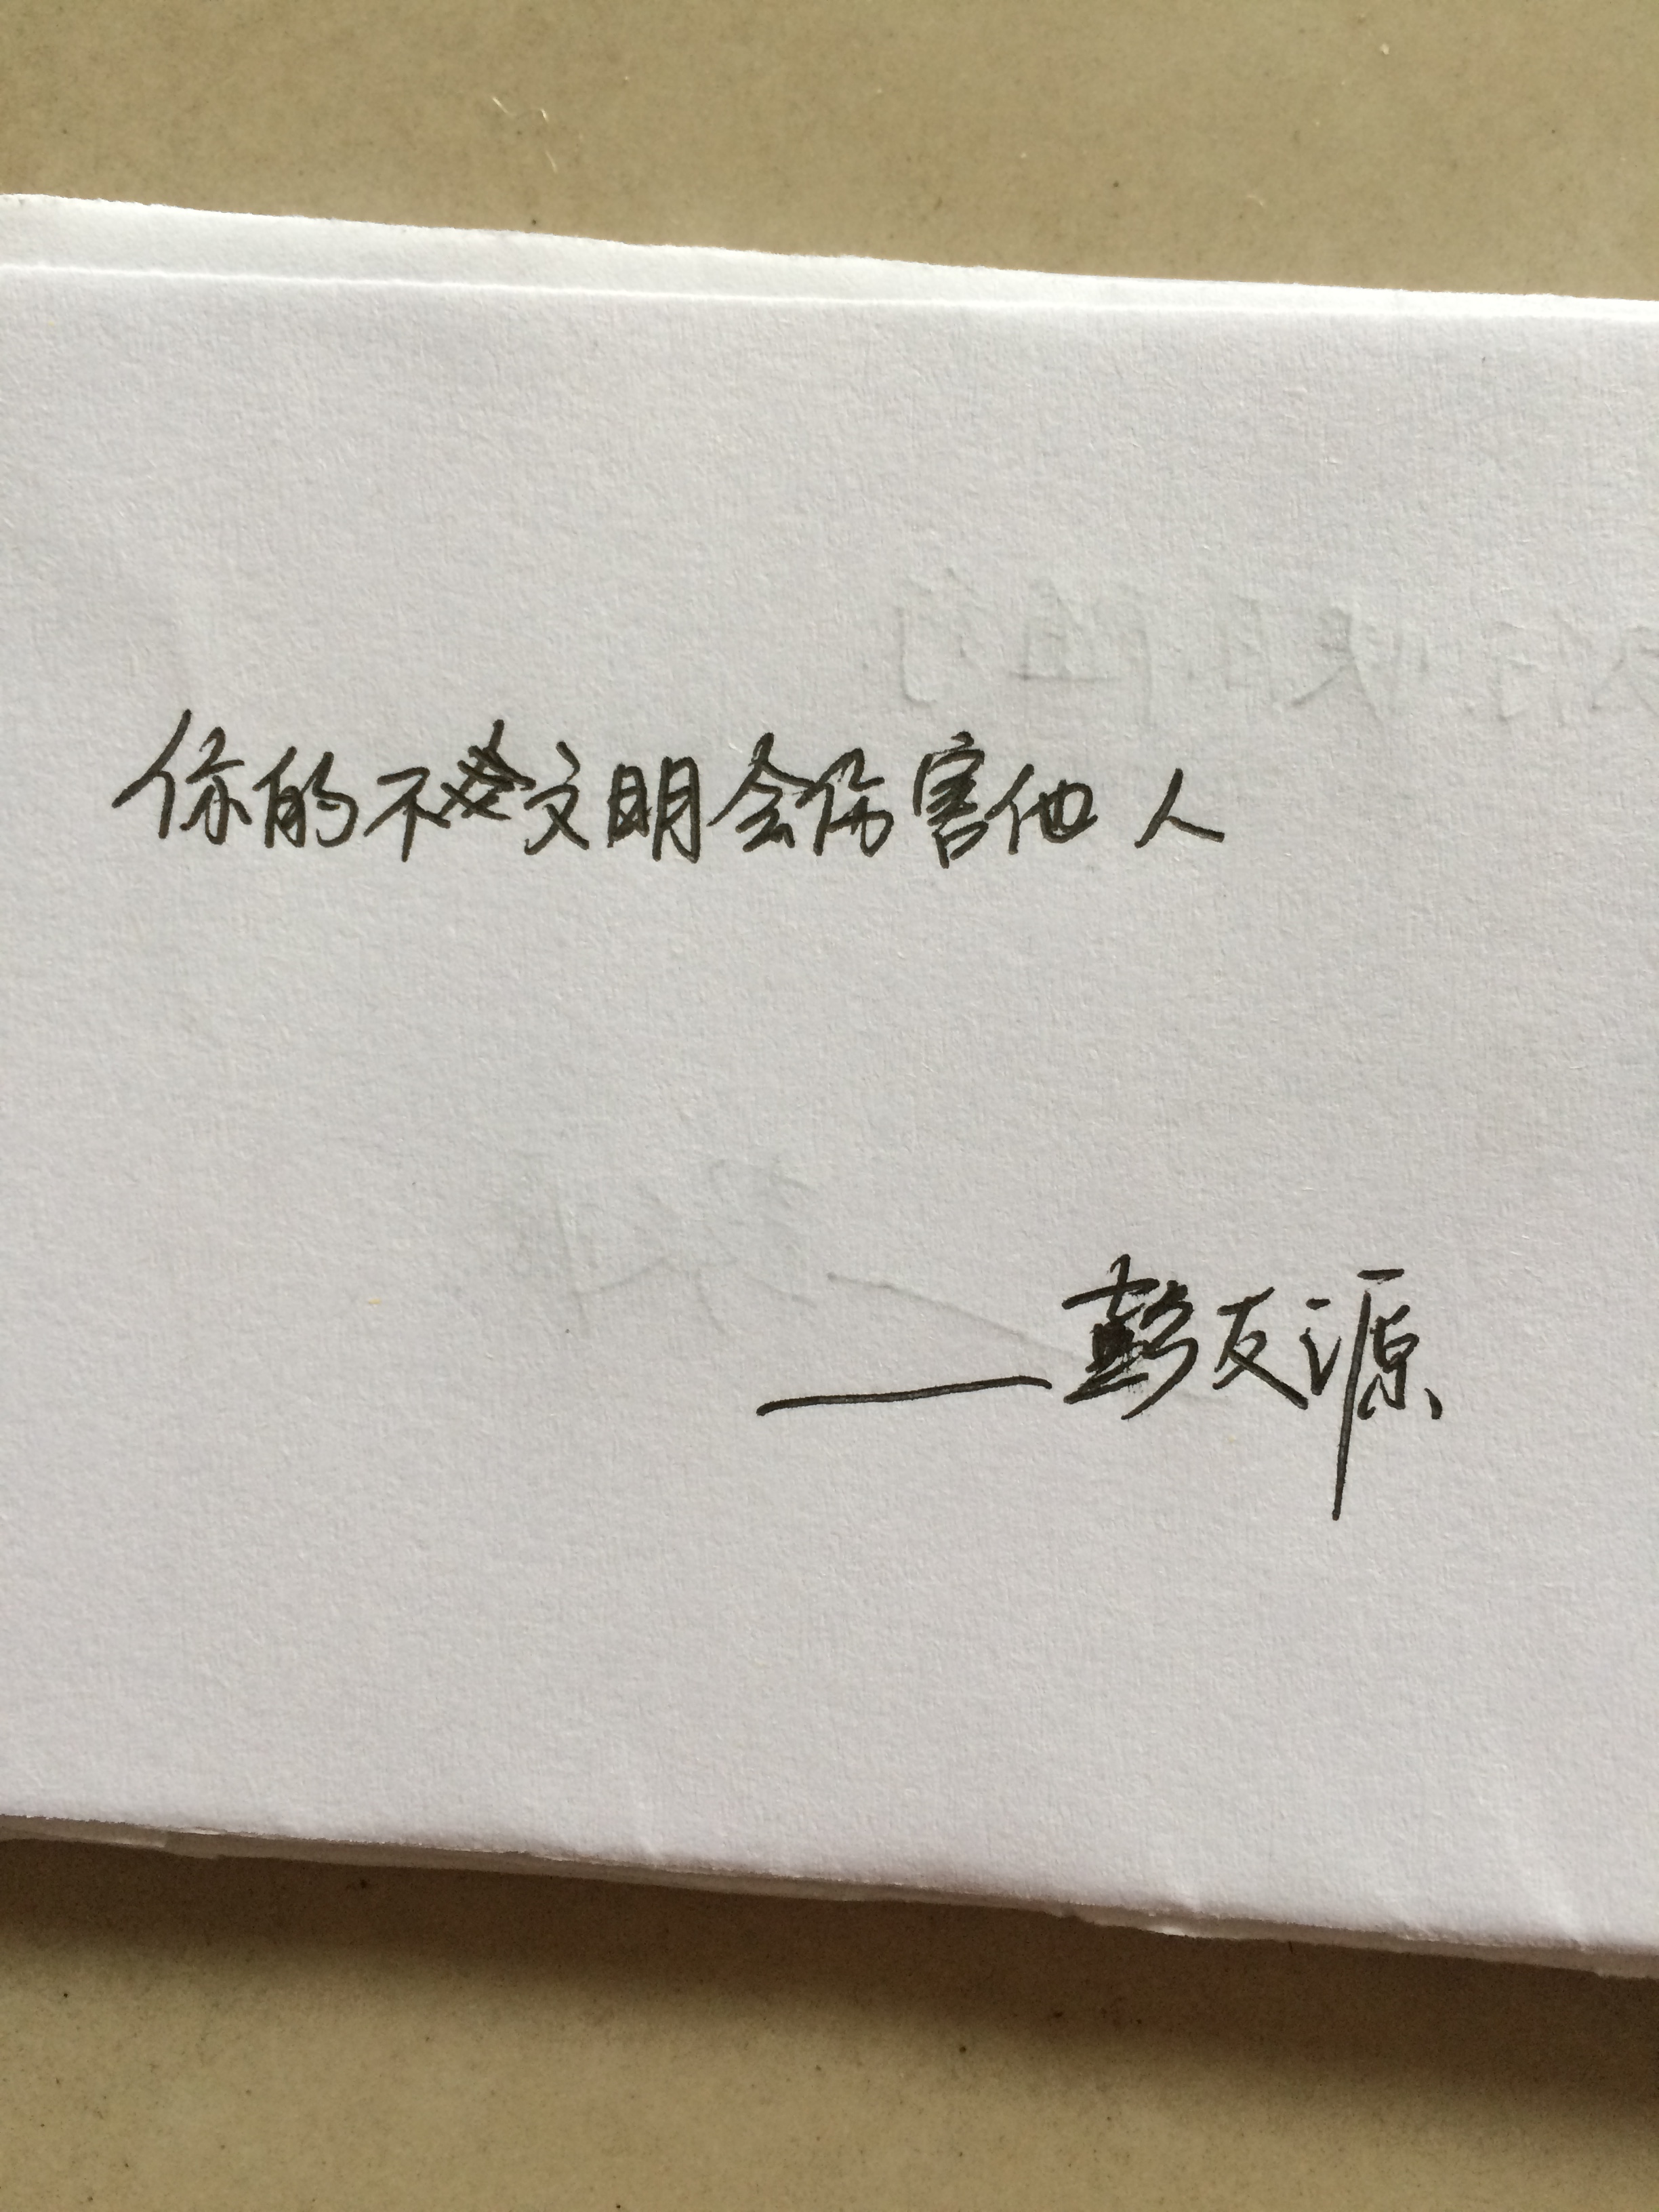 你的不文明会伤害他人
——彭友源